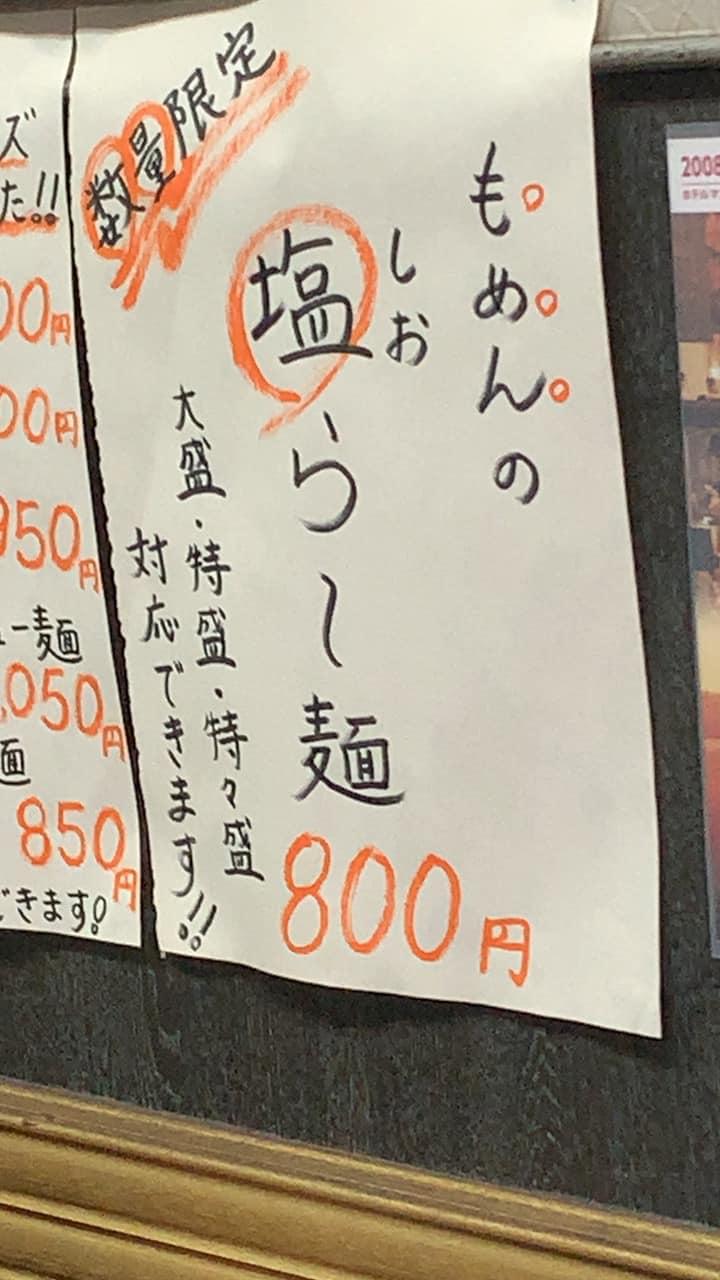 数量限定
もめんの
しお
塩らーし麺
大盛・特盛・特々盛
対応できます!!
800円
ズ
た!!
00円
00円
950円
ー麺
050円
麺
850円
できます!
2008
ホテル